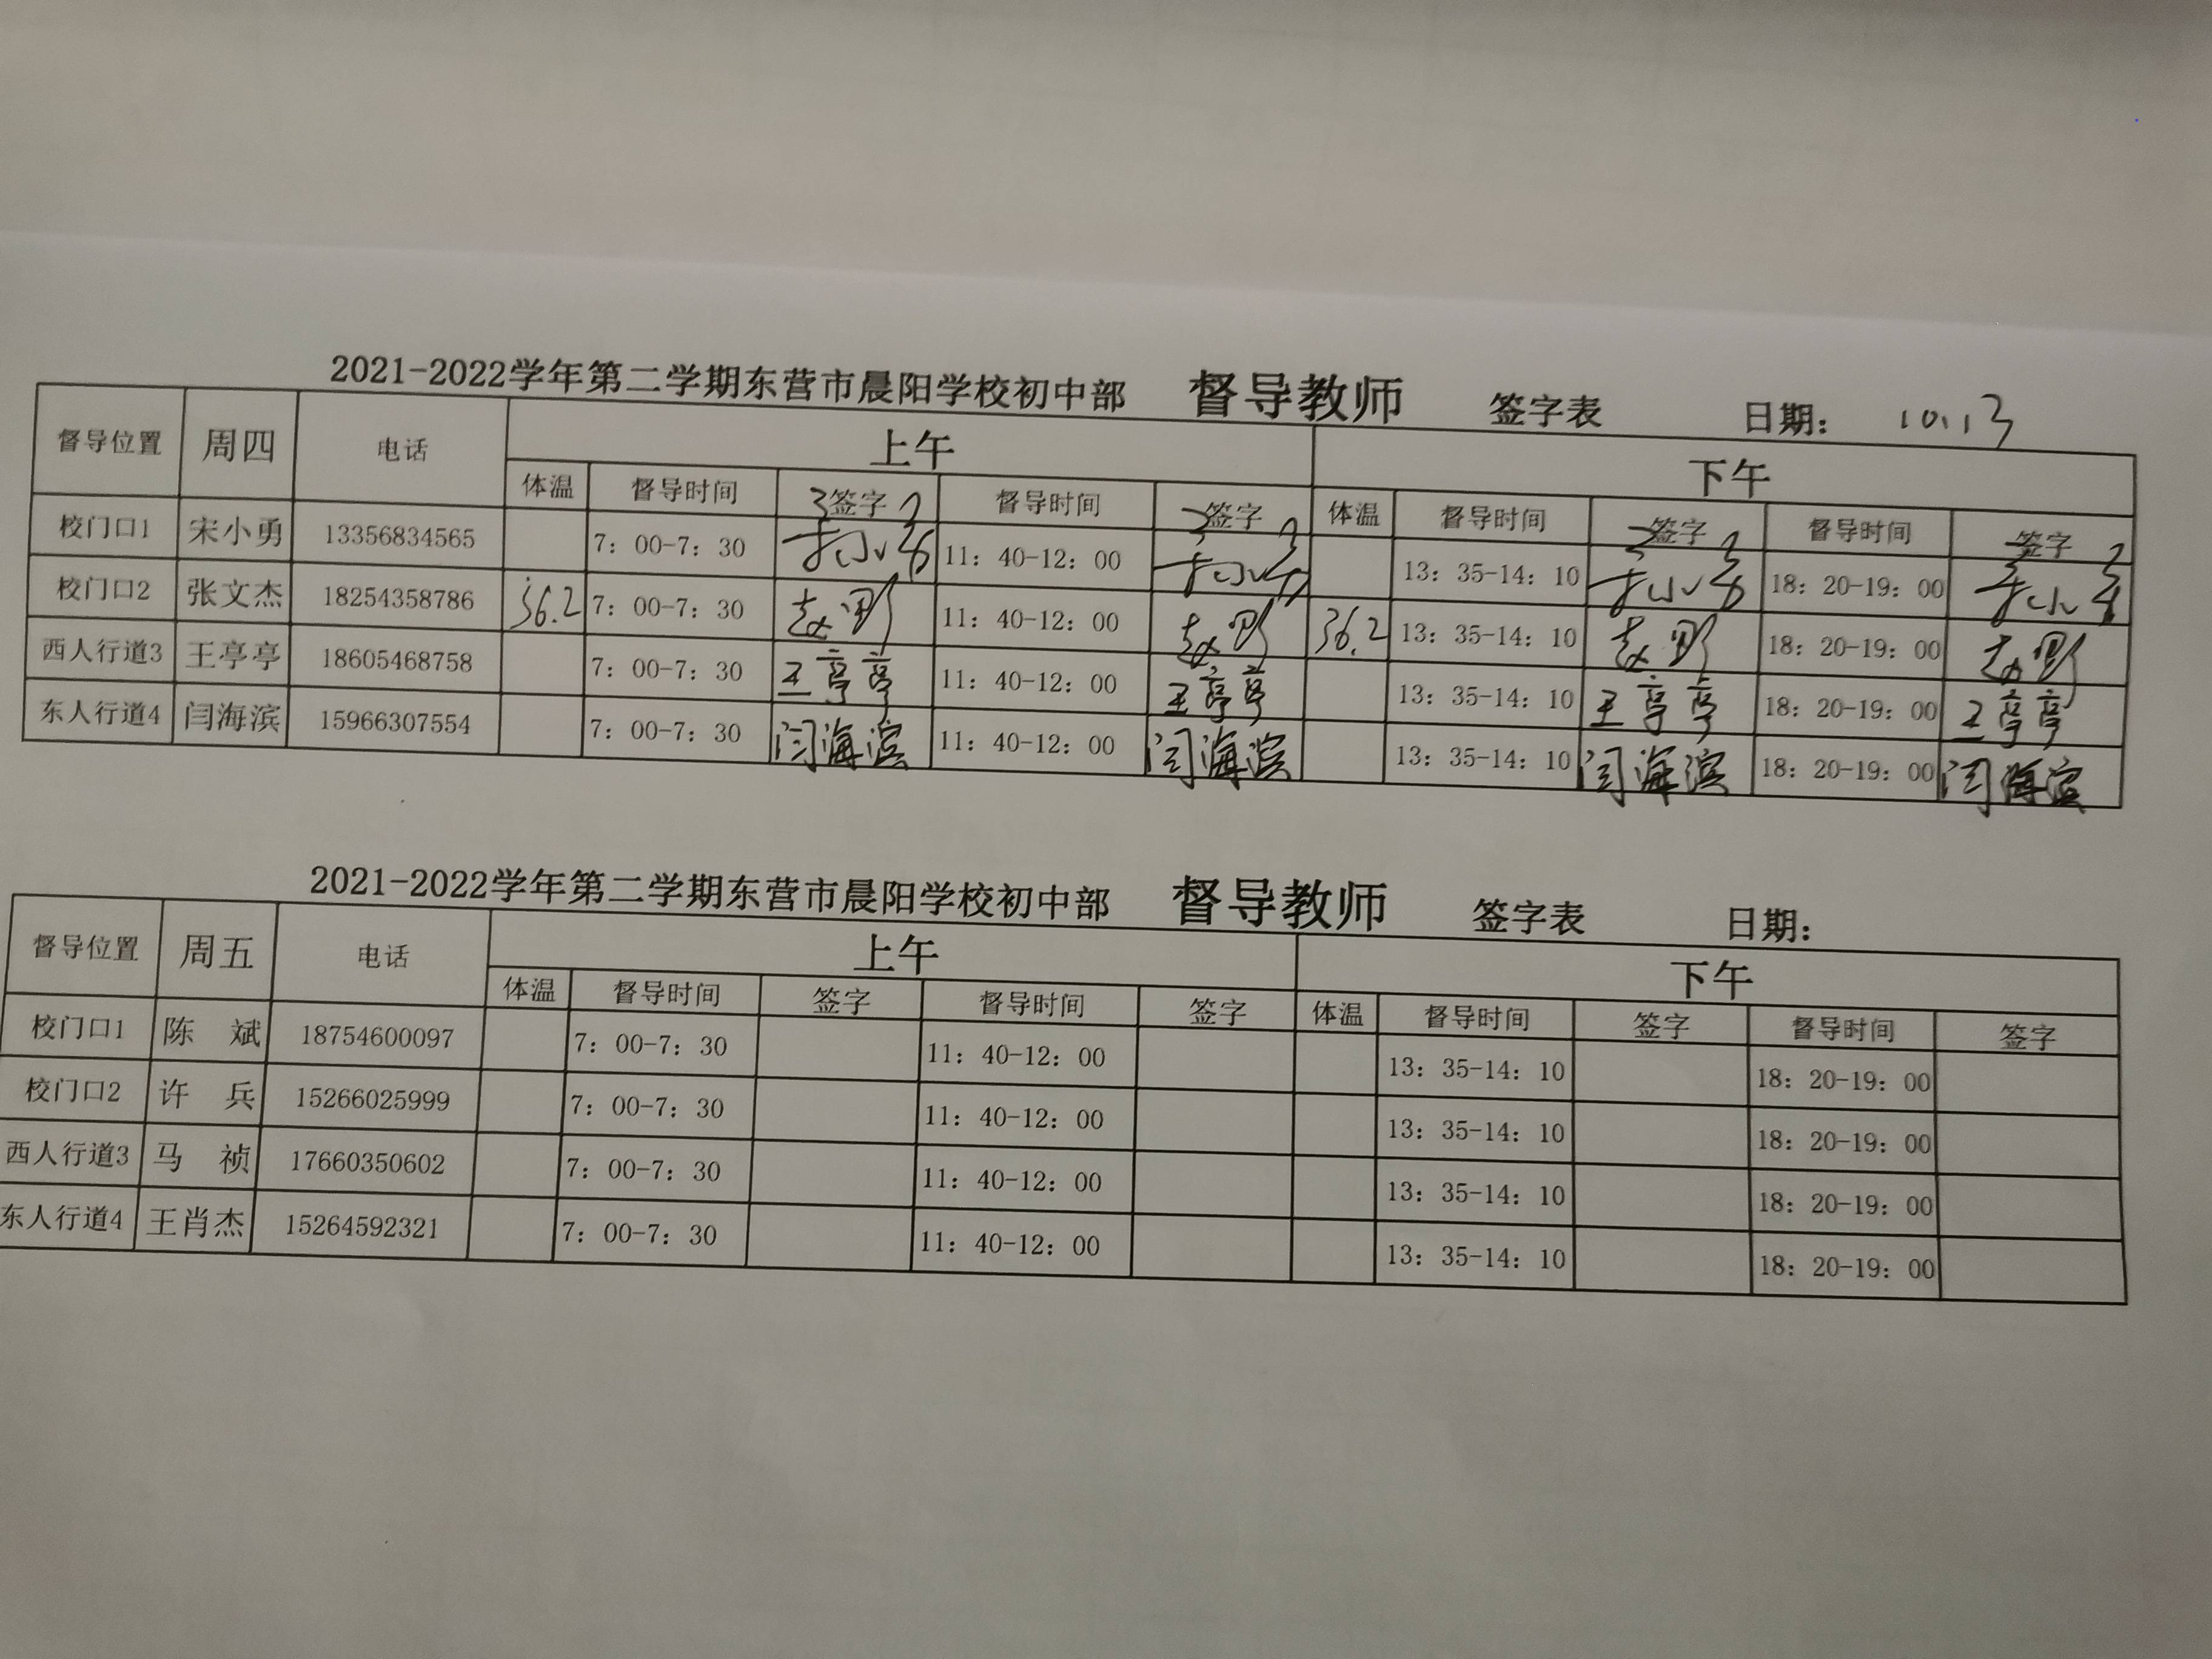 2021-2022学年第二学期东营市晨阳学校初中部 督导教师 签字表 日期: 10.13
督导位置 周四 电话 上午 下午
体温 督导时间 签字 督导时间 签字 体温 督导时间 签字 督导时间 签字
校门口1 宋小勇 13356834565 7: 00-7: 30 宋小勇 11: 40-12: 00 宋小勇 13: 35-14: 10 宋小勇 18: 20-19: 00 宋小勇
校门口2 张文杰 18254358786 36.2 7: 00-7: 30 11: 40-12: 00 36.2 13: 35-14: 10 18: 20-19: 00
西人行道3 王亭亭 18605468758 7: 00-7: 30 王亭亭 11: 40-12: 00 王亭亭 13: 35-14: 10 王亭亭 18: 20-19: 00 王亭亭
东人行道4 闫海滨 15966307554 7: 00-7: 30 闫海滨 11: 40-12: 00 闫海滨 13: 35-14: 10 闫海滨 18: 20-19: 00 闫海滨
2021-2022学年第二学期东营市晨阳学校初中部 督导教师 签字表 日期:
督导位置 周五 电话 上午 下午
体温 督导时间 签字 督导时间 签字 体温 督导时间 签字 督导时间 签字
校门口1 陈 斌 18754600097 7: 00-7: 30 11: 40-12: 00 13: 35-14: 10 18: 20-19: 00
校门口2 许 兵 15266025999 7: 00-7: 30 11: 40-12: 00 13: 35-14: 10 18: 20-19: 00
西人行道3 马 祯 17660350602 7: 00-7: 30 11: 40-12: 00 13: 35-14: 10 18: 20-19: 00
东人行道4 王肖杰 15264592321 7: 00-7: 30 11: 40-12: 00 13: 35-14: 10 18: 20-19: 00